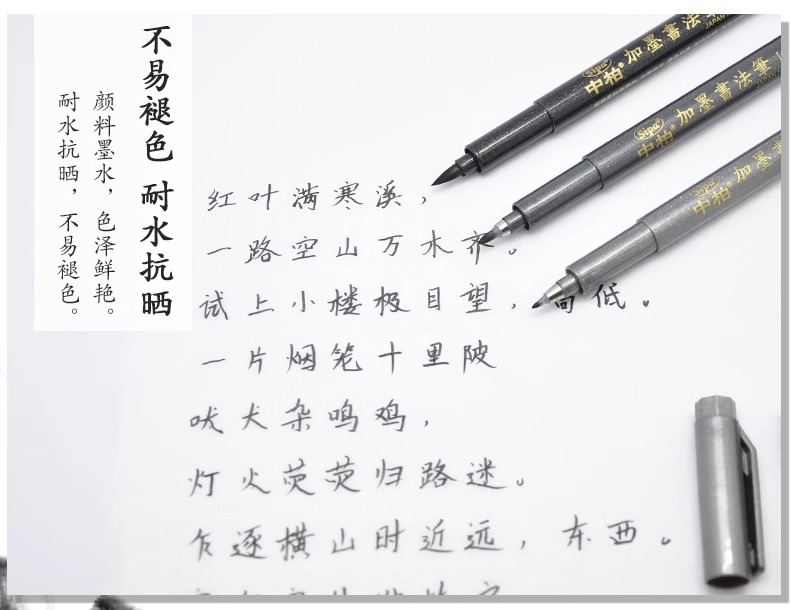 不易褪色 耐水抗晒
颜料墨水，色泽鲜艳。
耐水抗晒，不易褪色。
Sipa 中柏® 加墨書法筆
Sipa® 中柏® 加墨書法筆
Sipa 中柏® 加墨書法
红叶满寒溪，
一路空山万木齐。
试上小楼极目望，高低。
一片烟笼十里陂
吠犬杂鸣鸡，
灯火荧荧归路迷。
乍逐横山时近远，东西。